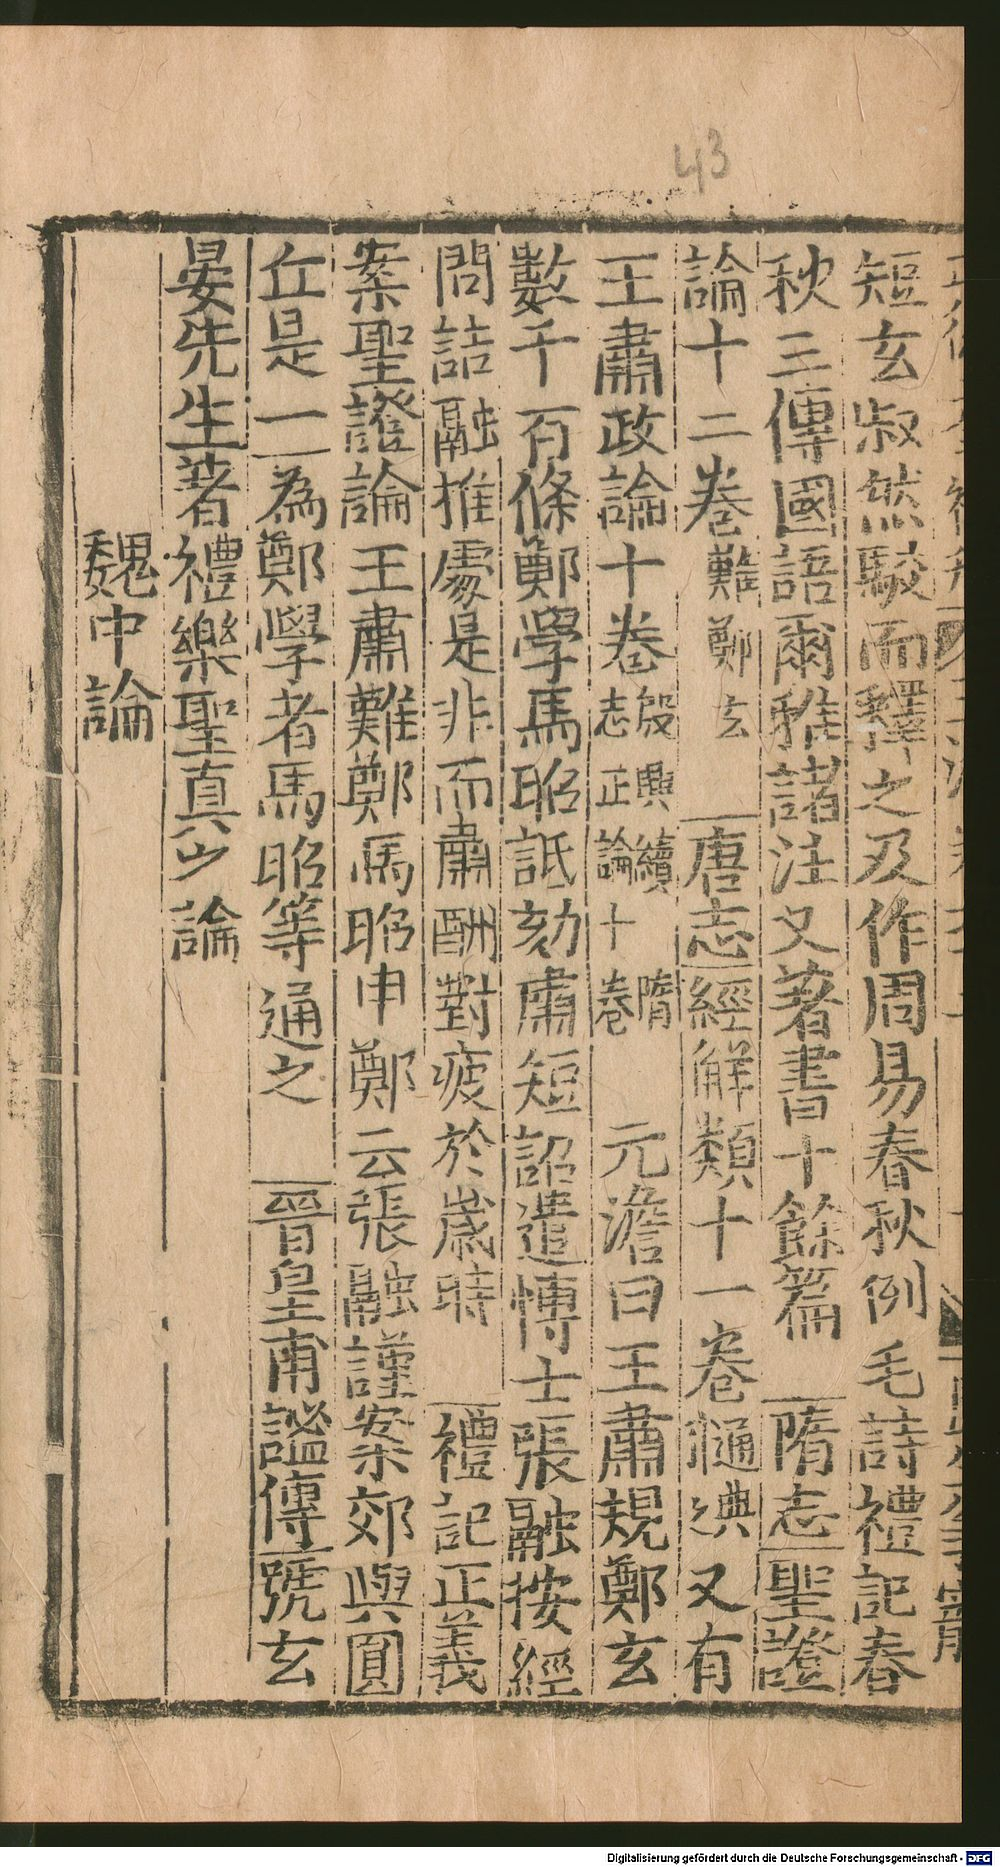 43
短玄叔然駮而釋之及作周易春秋例毛詩禮記春
秋三傳國語爾雅諸注又著書十餘篇 隋志聖證
論十二卷難鄭玄 唐志經解類十一卷 又有
王肅政論十卷殷興續隋志正論十卷 元澹曰王肅規鄭玄
數千百條鄭學馬昭詆劾肅短詔遣博士張融按經
問詰融推處是非而肅酬對疲於歲時 禮記正義
案聖證論王肅難鄭馬昭申鄭云張融謹案郊與圓
丘是一為鄭學者馬昭等通之 晉皇甫謐傳號玄
晏先生著禮樂聖真之論
魏中論
Digitalisierung gefördert durch die Deutsche Forschungsgemeinschaft - DFG